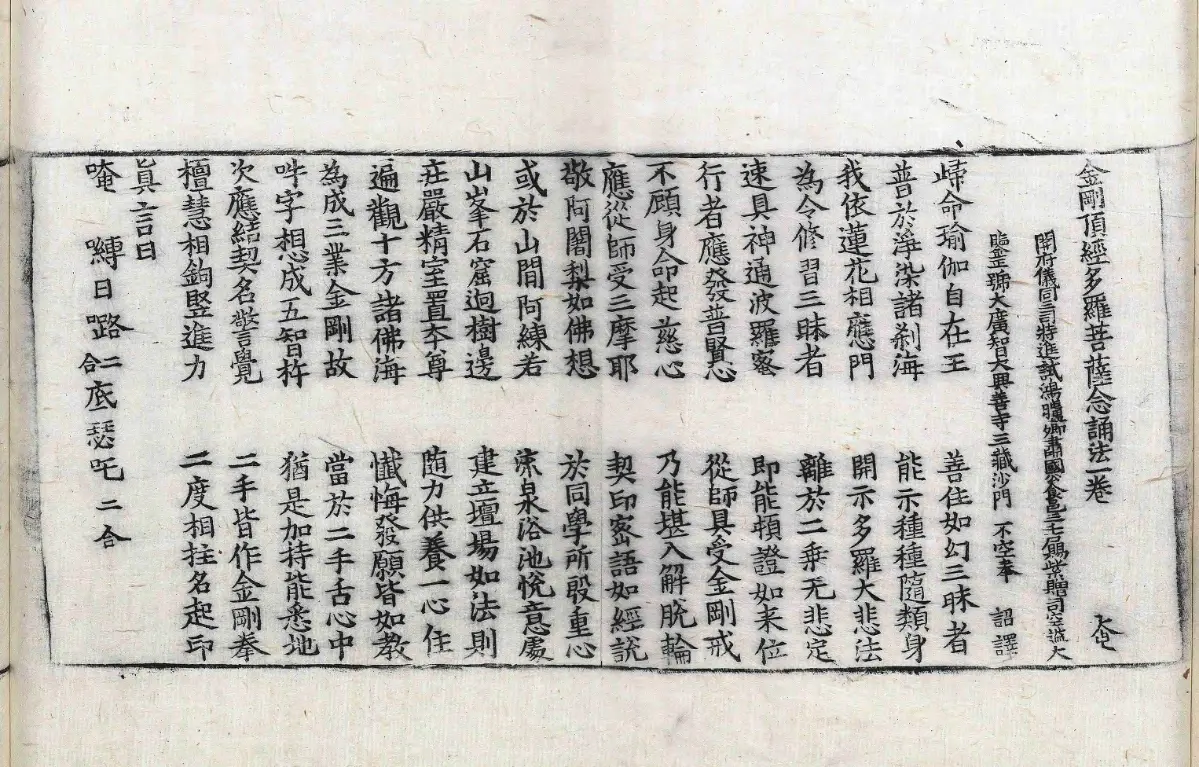 金剛頂經多羅菩薩念誦法一卷
開府儀同三司特進試鴻臚卿肅國公食邑三千户賜紫贈司空謚大
鑒正號大廣智大興善寺三藏沙門 不空奉 詔譯
歸命瑜伽自在王 善住如幻三昧者
普於淨染諸刹海 能示種種隨類身
我依蓮花相應門 開示多羅大悲法
為令修習三昧者 離於二乘无悲定
速具神通波羅蜜 即能頓證如来位
行者應發普賢心 從師具受金剛戒
不顧身命起慈心 乃能堪入解脫輪
應從師受三摩耶 契印密語如經說
敬阿闍梨如佛想 於同學所殷重心
或於山間阿練若 流泉浴池悅意處
山峯石窟迥樹邊 建立壇場如法則
莊嚴精室置本尊 随力供養一心住
遍觀十方諸佛海 懺悔發願皆如教
為成三業金剛故 當於二手舌心中
吽字想成五智杵 猶是加持能悉地
次應結契名警覺 二手皆作金剛拳
檀慧相鉤竪進力 二度相拄名起印
真言曰
唵 嚩日㘑二合底瑟吒二合